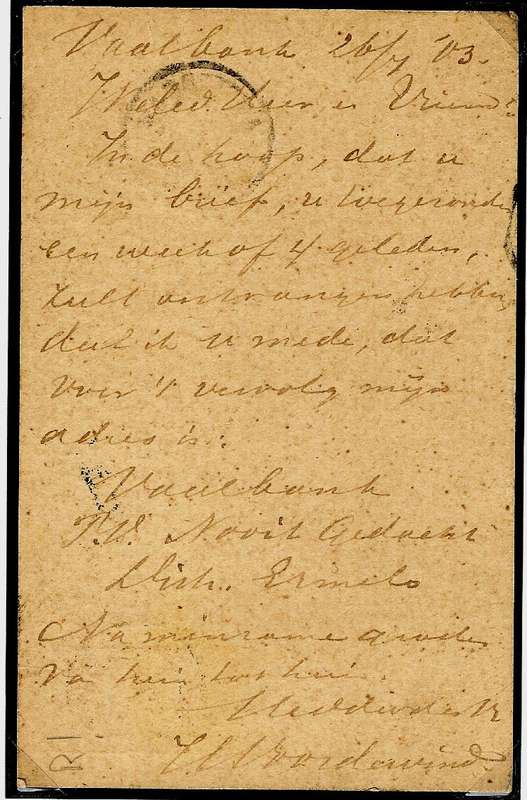 Vaalbank 26/7 '03.
WelEd. Heer en Vriend
In de hoop, dat u
mijn brief, u toegezonden
een week of 4 geleden,
zult ontvangen hebben,
deel ik u mede, dat
voor 't vervolg mijn
adres is:
Vaalbank
P.W. Nooit Gedacht
Dist. Ermelo
Na minzame groete
van huis tot huis